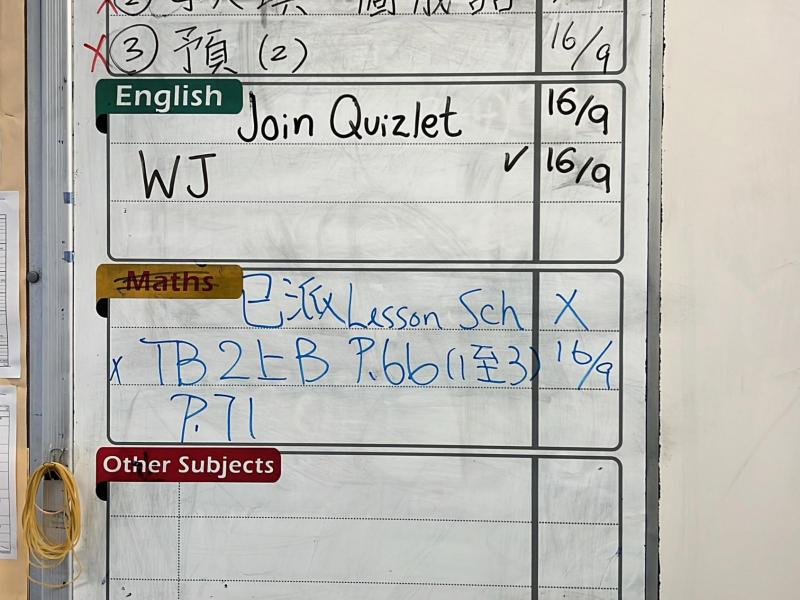 ③ 預 (2) 16/9
English
Join Quizlet 16/9
WJ ✓ 16/9
Maths
已派 Lesson Sch X
x TB 2上B P.66 (1至3) 16/9
P.71
Other Subjects